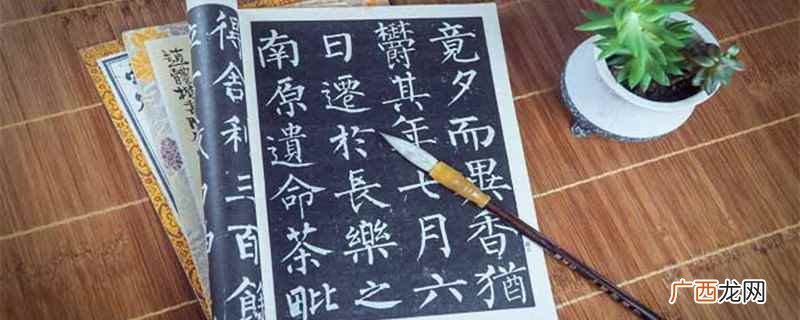 竟夕而異香猶
鬱其年七月六
日遷於長樂之
南原遺命茶毗
得舍利三百餘
广西龙网